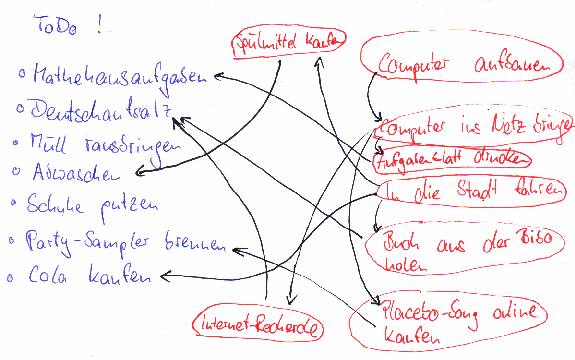 ToDo !
Mathehausaufgaben
Deutschaufsatz
Müll rausbringen
Abwaschen
Schuhe putzen
Party-Sampler brennen
Cola kaufen
Spülmittel kaufen
Computer aufbauen
Computer ins Netz bringen
Aufgabenblatt drucken
In die Stadt fahren
Buch aus der Bibo
holen
Placebo-Song online
kaufen
Internet-Recherche